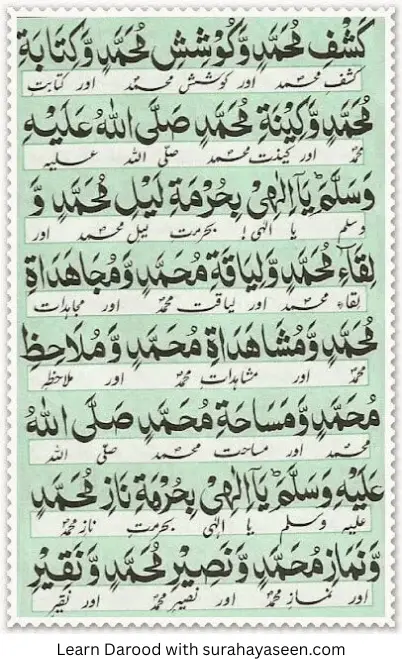 كَشْفِ مُحَمَّدٍ وَّكُوْشِشِ مُحَمَّدٍ وَّكِتَابَةِ
كشف محمد اور كوشش محمد اور كتابت
مُحَمَّدٍ وَّكِيْنَةِ مُحَمَّدٍ صَلَّى اللهُ عَلَيْهِ
محمد اور كينت محمد صلى الله عليه
وَسَلَّمَ يَآ اِلٰهِىْ بِحُرْمَةِ لَيْلِ مُحَمَّدٍ وَّ
وسلم يا الہى! بحرمت ليل محمد اور
لِقَآءِ مُحَمَّدٍ وَّلِيَاقَةِ مُحَمَّدٍ وَّمُجَاهَدَاةِ
لقاء محمد اور لياقت محمد اور مجاہدات
مُحَمَّدٍ وَّمُشَاهَدَاةِ مُحَمَّدٍ وَّمُلَاحِظِ
محمد اور مشاہدات محمد اور ملاحظہ
مُحَمَّدٍ وَّمَسَاحَةِ مُحَمَّدٍ صَلَّى اللهُ
محمد اور مساحت محمد صلى الله
عَلَيْهِ وَسَلَّمَ يَآ اِلٰهِىْ بِحُرْمَةِ نَازِ مُحَمَّدٍ
عليہ وسلم يا الہى بحرمت ناز محمد
وَّنَمَازِ مُحَمَّدٍ وَّنَصِيْرِ مُحَمَّدٍ وَّنَقِيْرِ
اور نماز محمد اور نصير محمد اور نقير
Learn Darood with surahayaseen.com